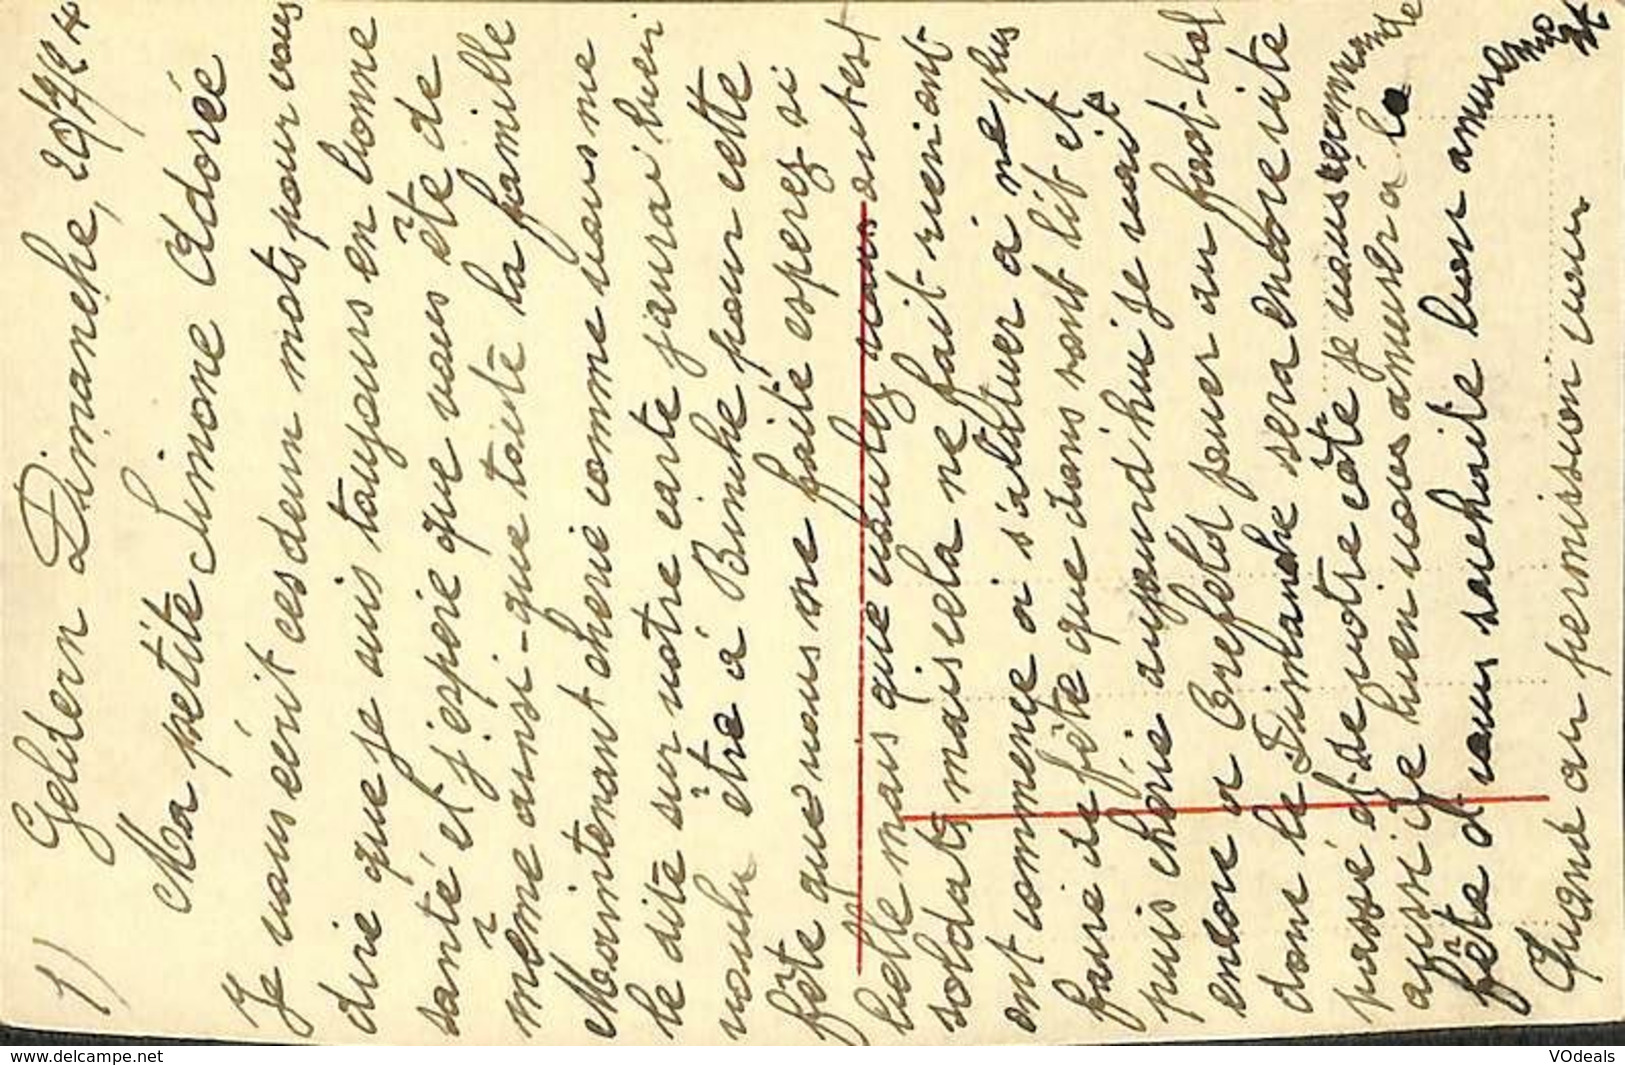 1)
Geldern Dimanche, 20/7/24
Ma petite Simone Adorée
Je vous écrit ces deux mots pour vous
dire que je suis toujours en bonne
santé et j'espere que vous ête de
même ainsi-que toute la famille
Maintenant cherie comme vous me
le dite sur votre carte jaurai bien
voulu être à Binche pour cette
fête que vous me faite esperez si
belle mais que voulez vous
soldats mais cela ne fait rien ont
ont commence a s'abituer a ne plus
faire de fête que dans sont lit et
puis chérie aujourd'hui je vait
encore a Crefeld jouer au foot-bal
donc le Dimanche sera encore vite
passé et de votre côté je vous
aussi de bien vous amuser a la
fête d vous souhaite bon amuse
Quand au permission nous
www.delcampe.net
VOdeals